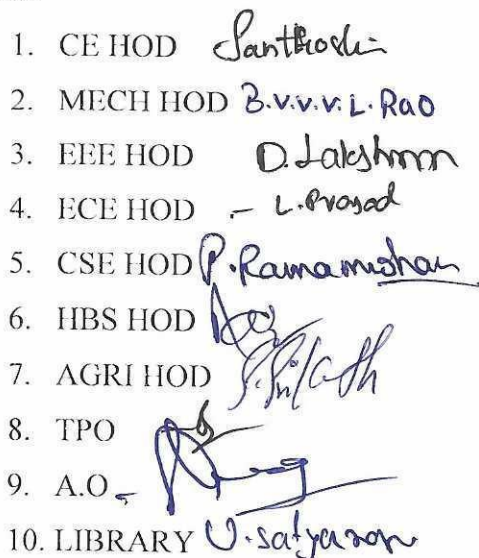 1. CE HOD Santhoshi
2. MECH HOD B.V.V.V.L.Rao
3. EEE HOD D.Lakshmn
4. ECE HOD - L.Prasad
5. CSE HOD P.Ramamohan
6. HBS HOD
7. AGRI HOD
8. TPO
9. A.O
10. LIBRARY